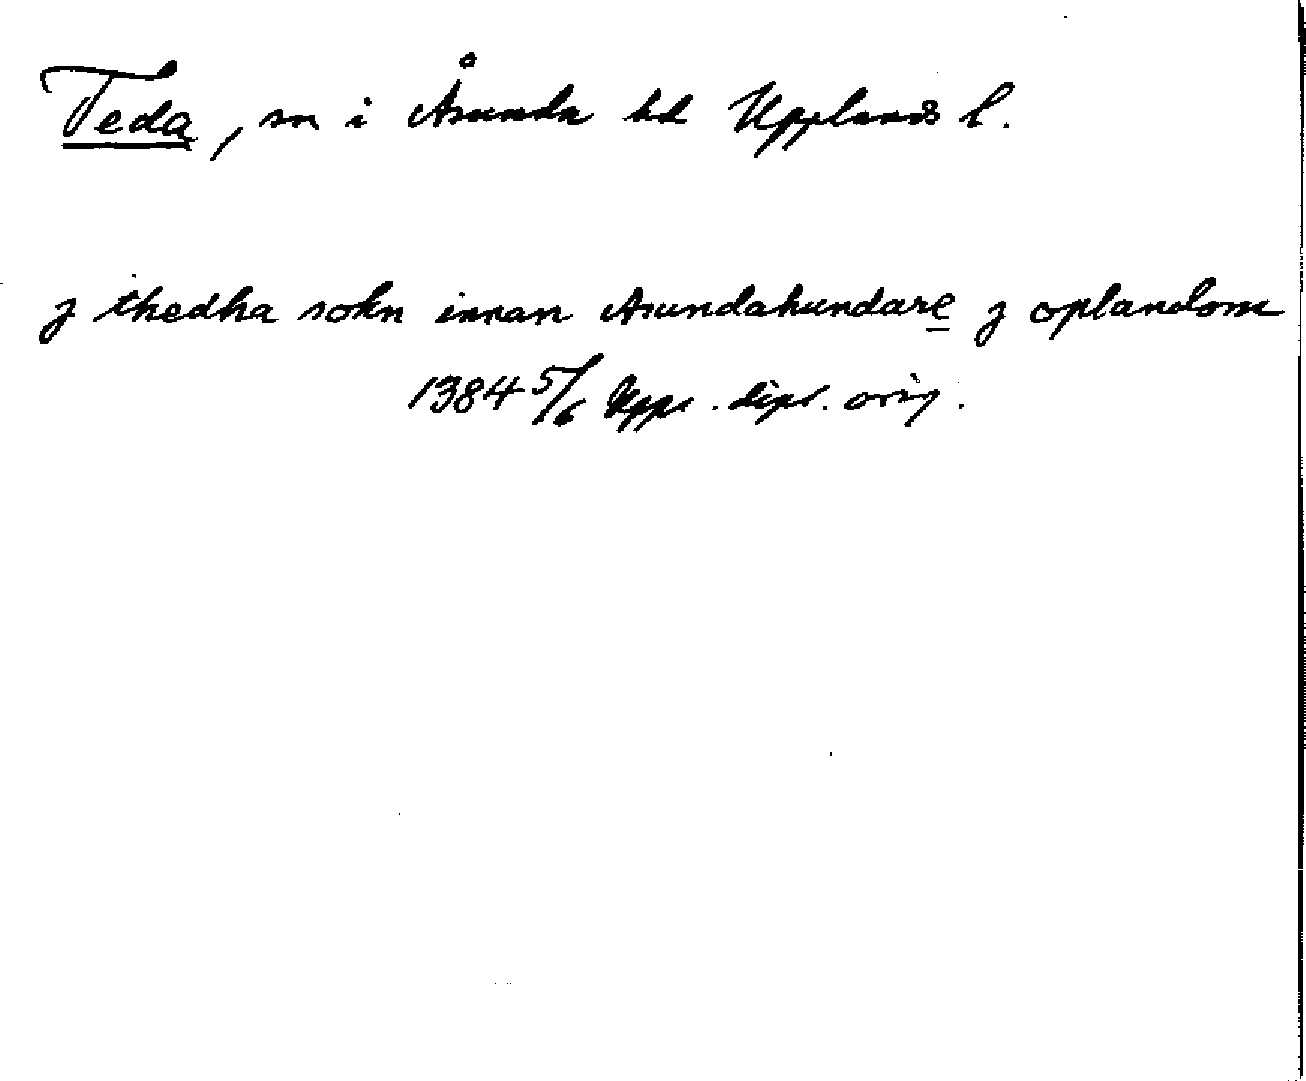 Teda, sn i Åsunda hd Upplands l.
j thedha sokn innan Asundahundare j oplandom
1384 5/6 Upps. dipl. orig.